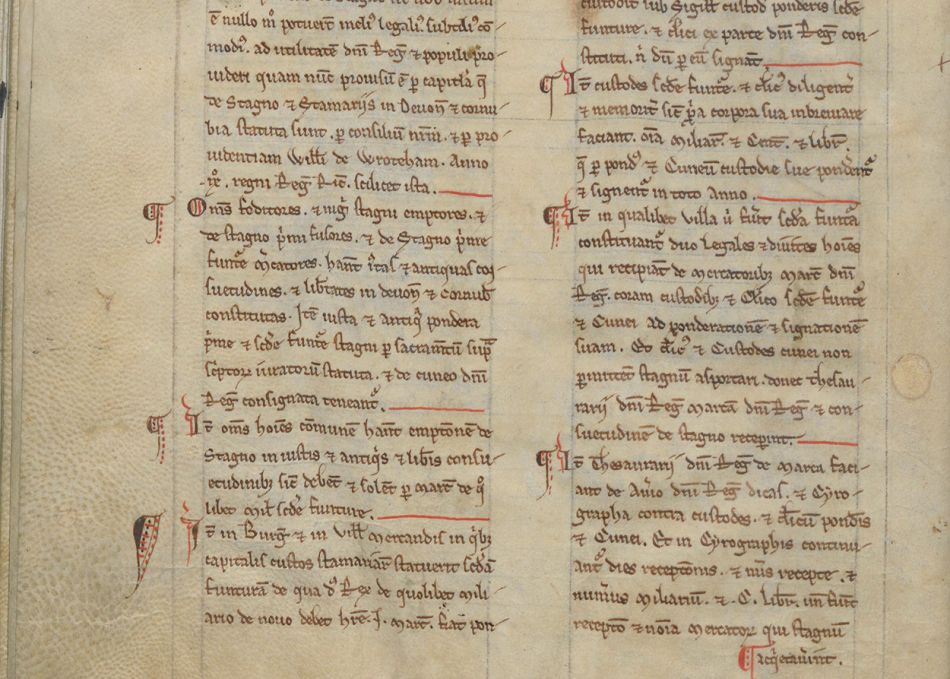 ē nullo m̄ potuerīt meli᷒ legali᷒ subtili᷒ cō
modi᷒. ad utilitatē dn̄i Reḡ ⁊ populi pro
videri quam nūc provisū ē per capitl̄a q̄
de Stagno ⁊ Stamariis in Devon̄ ⁊ cornu
bia statuta sunt. ꝑ consiliū nr̄m. ⁊ ꝑ pro
videntiam Will̄i de Wroteham. Anno
ix̊. regni Reḡ Ric̄. scilicet ista.
Om̄s foditores. ⁊ nig̊ stagni emptores. ⁊
de stagno pͥmi fusores. ⁊ de Stagno pͥme
funt̄e m̄catores. hant̄ ⁊ antiquas con
suetudines. ⁊ lib̄tates in devon̄ ⁊ cornub̄
constitutas. Itē iusta ⁊ antiq̄ pondera
pͥme ⁊ scd̄e funt̄e stagni ꝑ sacram̄tū supͣ
scͥptorꝝ iuratorū statuta. ⁊ de cuneo dn̄i
Reḡ consignata teneant̄.
It̄ om̄s hoīes cōmune hant̄ emptōnē de
Stagno in iustis ⁊ antiqͥs ⁊ lib̄is consu
etudinibꝫ sic̄ debēt ⁊ solēt ꝑ marc̄ de qͦ
libet mil̄ scd̄e funture.
It̄ in Burḡ ⁊ in vill̄ mercandis in qͥbꝫ
capitalis custos stamariarꝝ statuerit scd̄ā
funturā de qua dn̄s Rex de quolibet mili
ario de novo debet hr̄e .I. marc̄. fiat pon
custodit sub Sigill̄ custod̄ ponderis scd̄e
funture. ⁊ cl̄ici ex parte dn̄i Reḡ con
stituti. n̄ dū ꝑ eū signat̄.
It̄ custodes scd̄e funt̄e. ⁊ cl̄ic᷒ diligent̄
⁊ memorit̄ sic̄ p̄ra corpora sua inbreviare
faciant. oīa miliar̄. ⁊ Cent̄. ⁊ libr̄.
q̄ ꝑ pond᷒ ⁊ Cuneū custodie sue pondent̄
⁊ signent̄ in toto Anno.
It̄ in qualibet villa u̇ fu̇it scd̄a funt̄a
constituant̄ duo legales ⁊ divites hoīes
qui recipiāt de mercatoribꝫ marc̄ dn̄i
Reḡ. coram custodibꝫ ⁊ Cl̄ico scd̄e funt̄e
⁊ Cunei ad ponderationē ⁊ signationē
suam. Et cl̄ic᷒ ⁊ Custodes cunei non
ꝑmittēt stagnū asportari. donec thesau
rarii dn̄i Reḡ marcā dn̄i Reḡ ⁊ con
suetudinē de stagno receperint.
It̄ Thesaurarii dn̄i Reḡ de marca faci
ant de Anno dn̄i Reḡ dicas. ⁊ Cyro
grapha contra custodes. ⁊ cl̄icū pond̄is
⁊ Cunei. Et in Cyrographis continu
ant̄ dies receptōnis. ⁊ num̄s recepte. ⁊
num̄us miliariū. ⁊ .C. libr̄. un̄ fu̇it
receptō ⁊ nōia mercatorꝝ qui stagnū
acqͥetaverint.